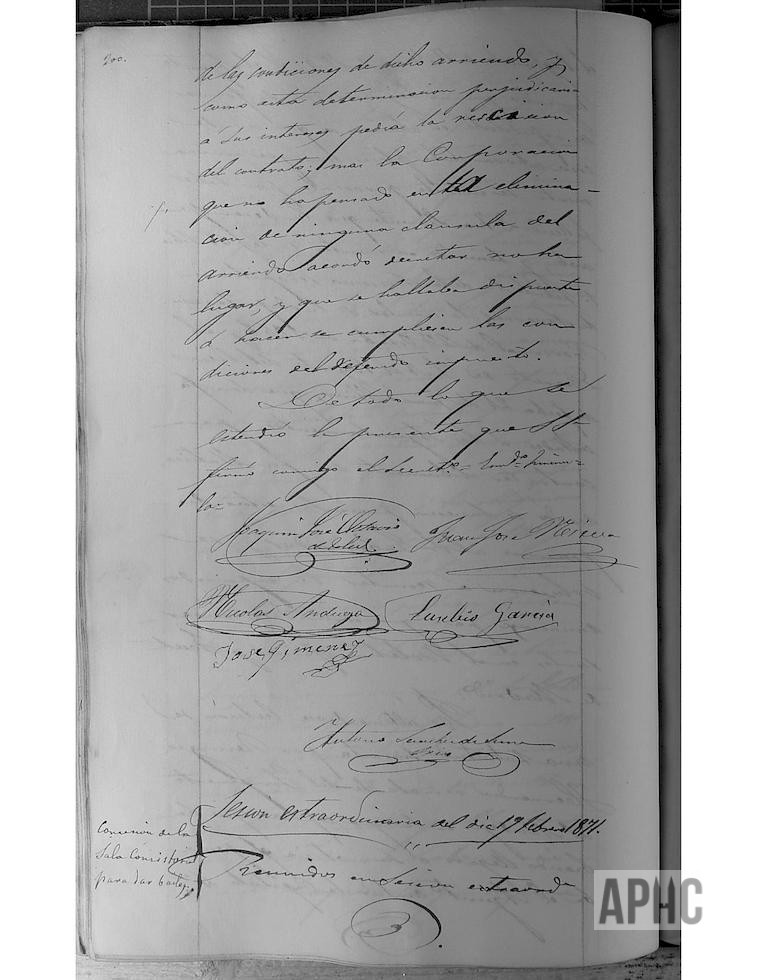 200.
de las condiciones de dicho arriendo, y
como esta determinacion perjudicaria
á sus intereses pedia la rescicion
del contrato; mas la Corporacion
que no ha pensado en la elimina-
cion de ninguna clausula del
arriendo acordó decretar no ha
lugar, y que se hallaba dispuesta
á hacer se cumpliesen las con
diciones del referido impuesto.
De todo lo que se
estendió la presente que
firmó conmigo el Secretº.=
la=
Joaquin José
Juan José
Nicolas Andueza
Eusebio Garcia
Jose Gimenez
Antonio Sanchez de
Sesion extraordinaria del dia 17 febrero 1871.
Concesion de la
Sala Consistorial
para dar bailes.
Reunidos en Sesion extraord
APHC